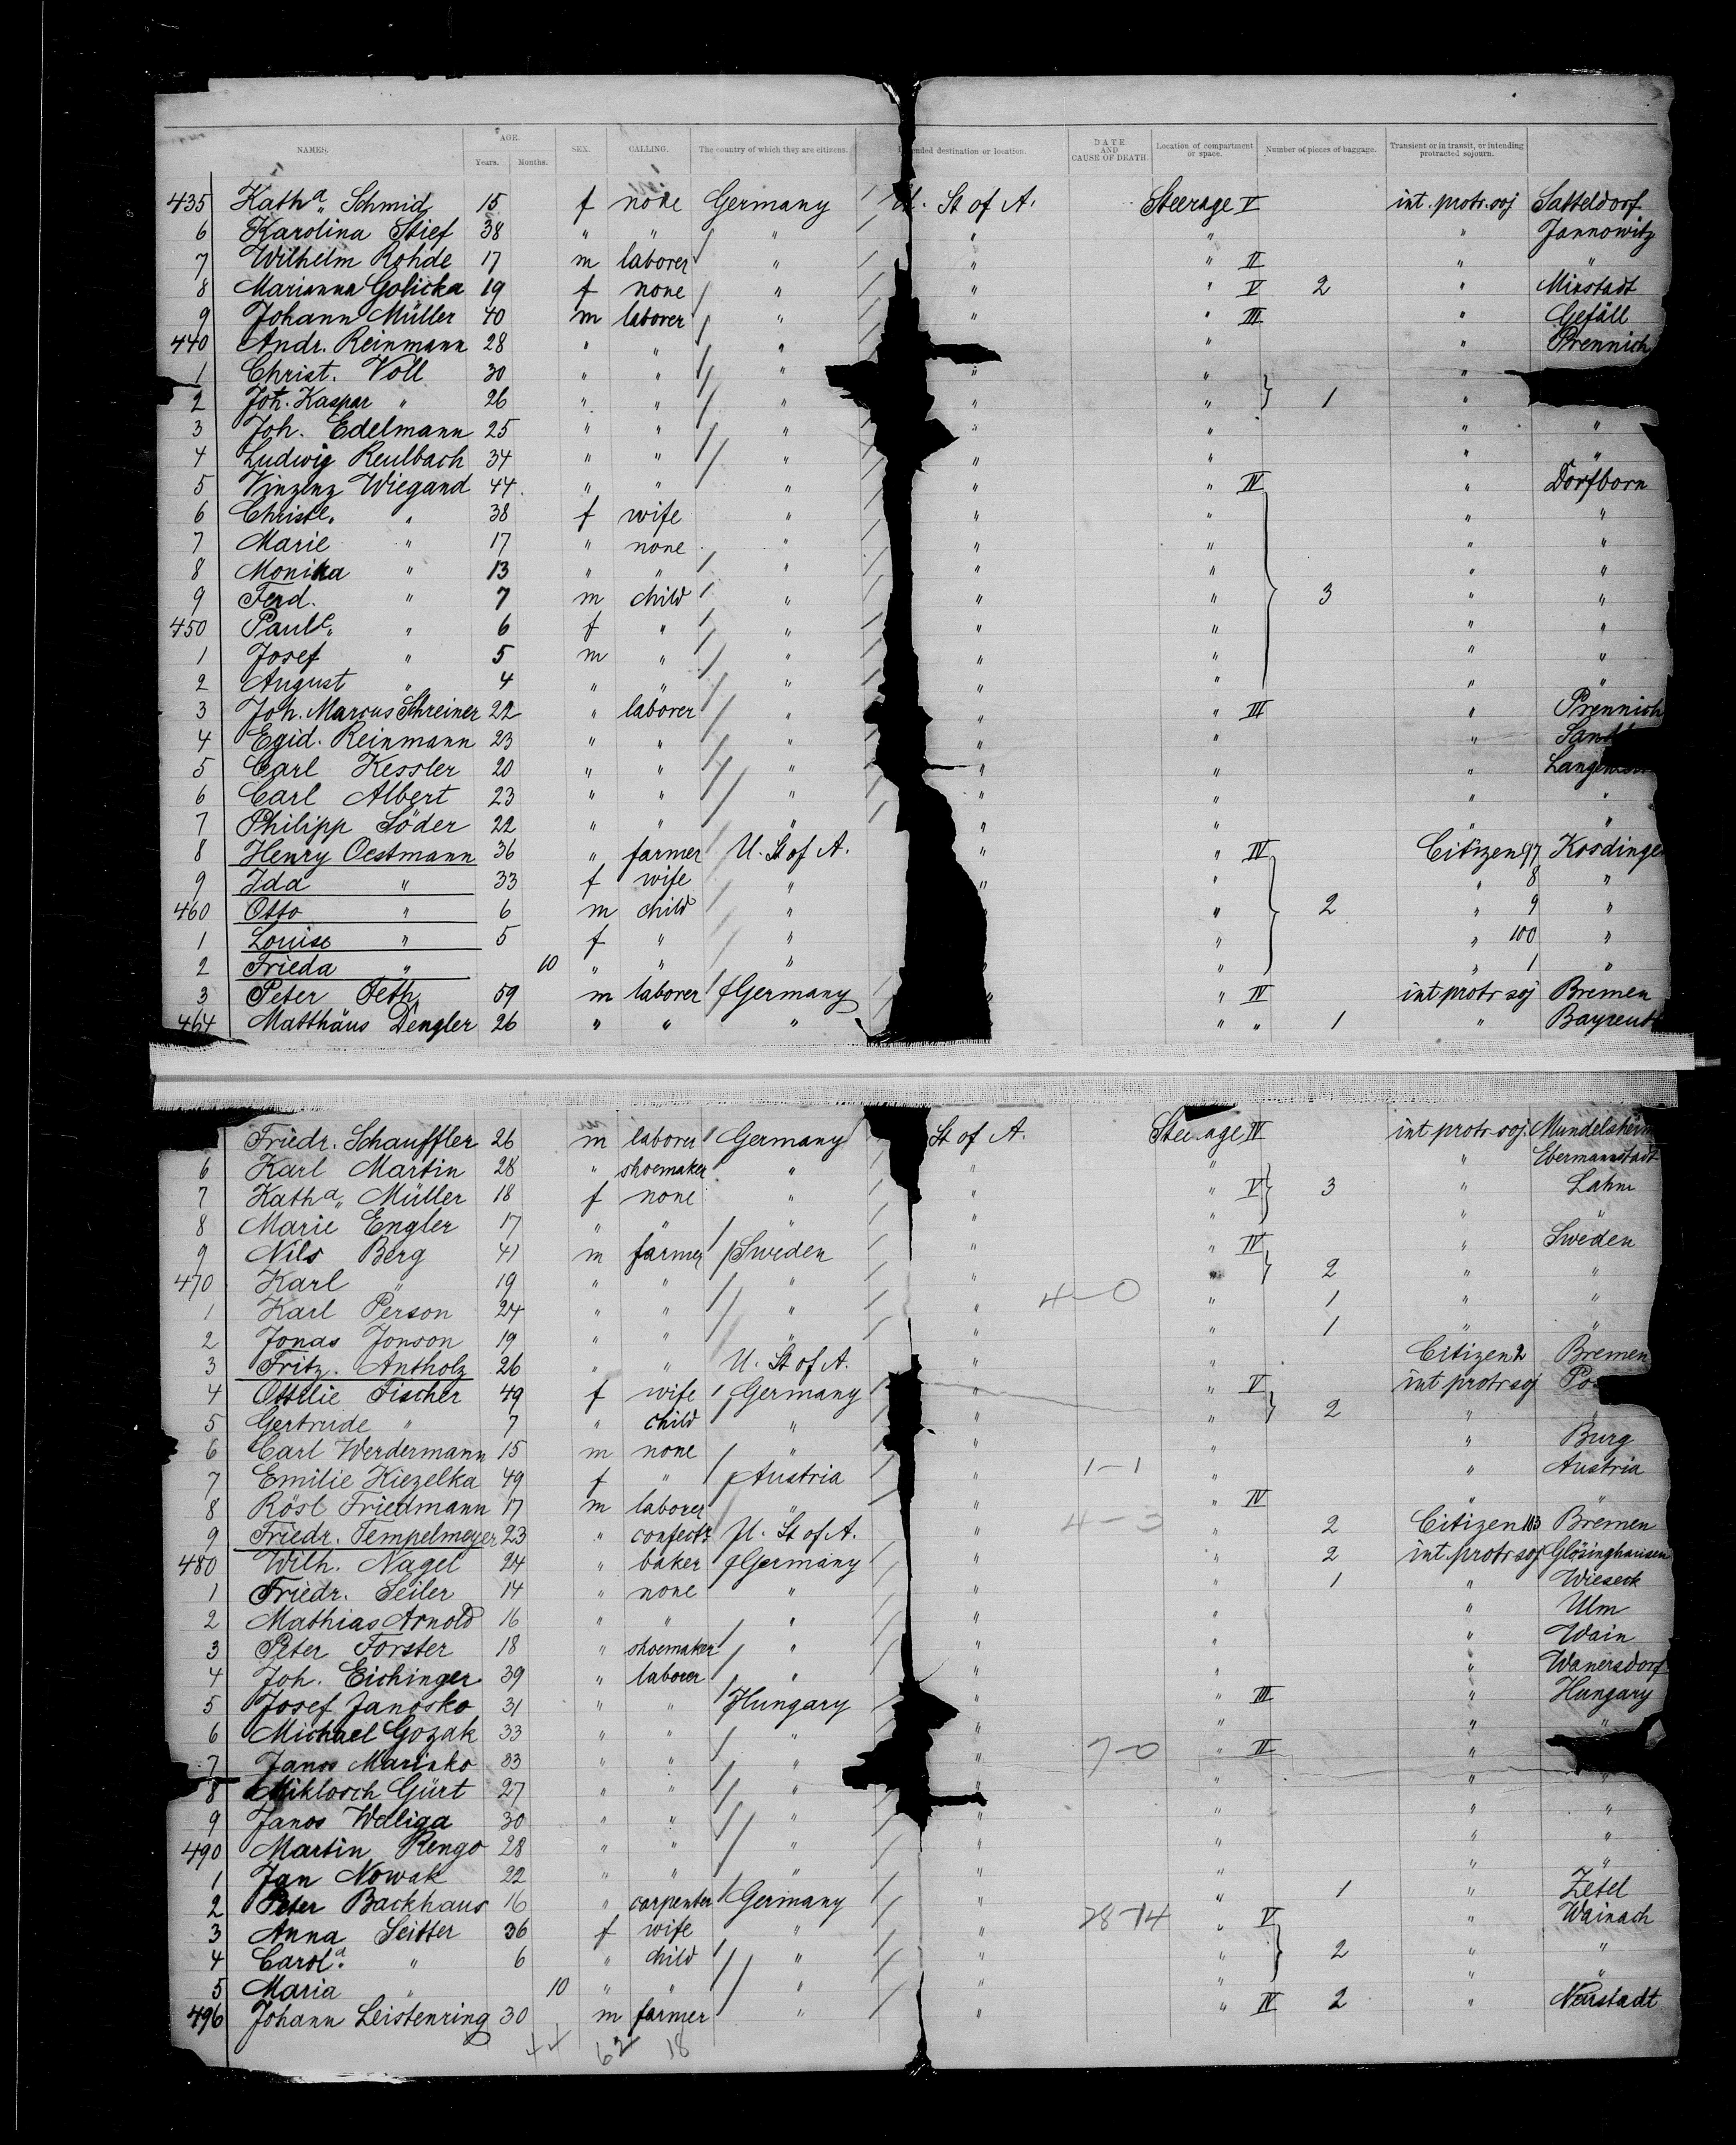 NAMES. AGE. Years. Months. SEX. CALLING. The country of which they are citizens. nded destination or location. DATE AND CAUSE OF DEATH. Location of compartment or space. Number of pieces of baggage. Transient or in transit, or intending protracted sojourn.
435 Kath.a Schmid 15 f none Germany U. St of A. Steerage V int. protr. soj Satteldorf
6 Karolina Stief 38 " " " " " " Jannowitz
7 Wilhelm Rohde 17 m laborer " " " II " "
8 Marianna Golicka 19 f none " " " V 2 " Mixstadt
9 Johann Müller 40 m laborer " " " III " Gefäll
440 Andr. Reinmann 28 " " " " " Prennich
1 Christ. Voll 30 " " " " " "
2 Joh. Kaspar " 26 " " " " " 1 "
3 Joh. Edelmann 25 " " " " " " "
4 Ludwig Reulbach 34 " " " " " " "
5 Vinzenz Wiegand 44 " " " " " IV " Dorfborn
6 Christe. " 38 f wife " " " " "
7 Marie " 17 " none " " " " "
8 Monika " 13 " " " " " " "
9 Ferd. " 7 m child " " " 3 " "
450 Paule. " 6 f " " " " " "
1 Josef " 5 m " " " " " "
2 August " 4 " " " " " " "
3 Joh. Marcus Schreiner 22 " laborer " " " III " Prennich
4 Egid. Reinmann 23 " " " " " "
5 Carl Kessler 20 " " " " " "
6 Carl Albert 23 " " " " " " "
7 Philipp Söder 22 " " " " " " "
8 Henry Oestmann 36 " farmer U. St of A. " " IV Citizen 97
9 Ida " 33 f wife " " " " 8 "
460 Otto " 6 m child " " 2 " 9 "
1 Louise " 5 f " " " " 100 "
2 Frieda " 10 " " " " " 1 "
3 Peter Feth 59 m laborer Germany " " IV int protr soj Bremen
464 Matthäus Dengler 26 " " " " " 1 " Bayreut
Friedr. Schauffler 26 m laborer Germany St of A. Steerage IV int protr soj. Mundelsheim
6 Karl Martin 28 " shoemaker " " " " Ebermannstadt
7 Kath.a Müller 18 f none " " " V 3 " Lahm
8 Marie Engler 17 " " " " " " "
9 Nils Berg 41 m farmer Sweden " " IV " Sweden
470 Karl " 19 " " " " " 2 " "
1 Karl Person 24 " " " " 4-0 " 1 " "
2 Jonas Jonson 19 " " " " " 1 " "
3 Fritz. Antholz 26 " " U. St of A. " " Citizen 2 Bremen
4 Ottilie Fischer 49 f wife Germany " " V int protr soj
5 Gertrude " 7 " child " " " 2 " "
6 Carl Werdermann 15 m none " " " " Burg
7 Emilie Kiezelka 49 f " Austria " 1-1 " " Austria
8 Rösl Friedmann 17 m laborer " " " IV " "
9 Friedr. Tempelmeyer 23 " confectr U. St of A. " 4-3 " 2 Citizen 103 Bremen
480 Wilh. Nagel 24 " baker Germany " " 2 int protr soj Glösinghausen
1 Friedr. Seiler 14 " none " " " 1 " Wieseck
2 Mathias Arnold 16 " " " " " " Ulm
3 Peter Forster 18 " shoemaker " " " " Wain
4 Joh. Eichinger 39 " laborer " " " " Wanersdorf
5 Josef Janosko 31 " " Hungary " " III " Hungary
6 Michael Gozak 33 " " " " " " "
7 Janos Marinko 33 " " " " 7-0 " II "
8 Miklosch Gürt 27 " " " " " " "
9 Janos Waliga 30 " " " " " " "
490 Martin Rengo 28 " " " " " " "
1 Jan Nowak 22 " " " " " " "
2 Peter Backhaus 16 " carpenter Germany " " 1 " Zetel
3 Anna Seitter 36 f wife " " 28-14 " V " Wainach
4 Carola. " 6 " child " " " 2 " "
5 Maria " 10 " " " " " " "
496 Johann Leistenring 30 m farmer " " " IV 2 " Neustadt
44 62 18